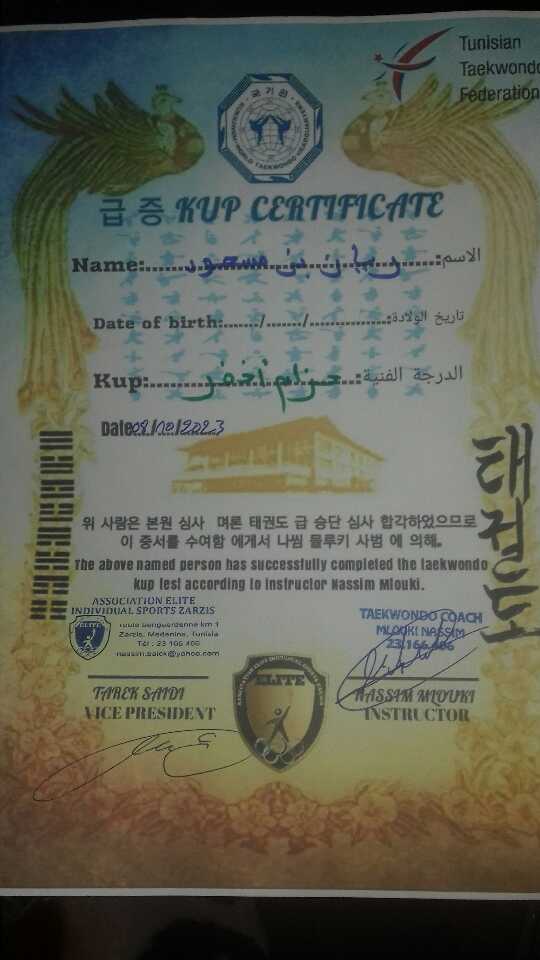 Tunisian
Taekwondo
Federation
국기원
WORLD TAEKWONDO HEADQUARTERS
급증 KUP CERTIFICATE
Name: ريان بن مسعود :الاسم
Date of birth:....../....../............:تاريخ الولادة
Kup: حزام أخضر :الدرجة الفنية
Date 08/10/2023
태권도
위 사람은 본원 심사 며론 태권도 급 승단 심사 합각하었으므로
이 중서를 수여함 에게서 나씸 믈루키 사범 에 의해.
The above named person has successfully completed the taekwondo
kup test according to Instructor Nassim Mlouki.
ASSOCIATION ELITE
INDIVIDUAL SPORTS ZARZIS
route benguerdenne km 1
Zarzis, Medenine, Tunisia
Tél : 23 166 406
nassim.saick@yahoo.com
ELITE
TAEKWONDO COACH
MLOUKI NASSIM
23.166.406
TAREK SAIDI
VICE PRESIDENT
ELITE
NASSIM MLOUKI
INSTRUCTOR